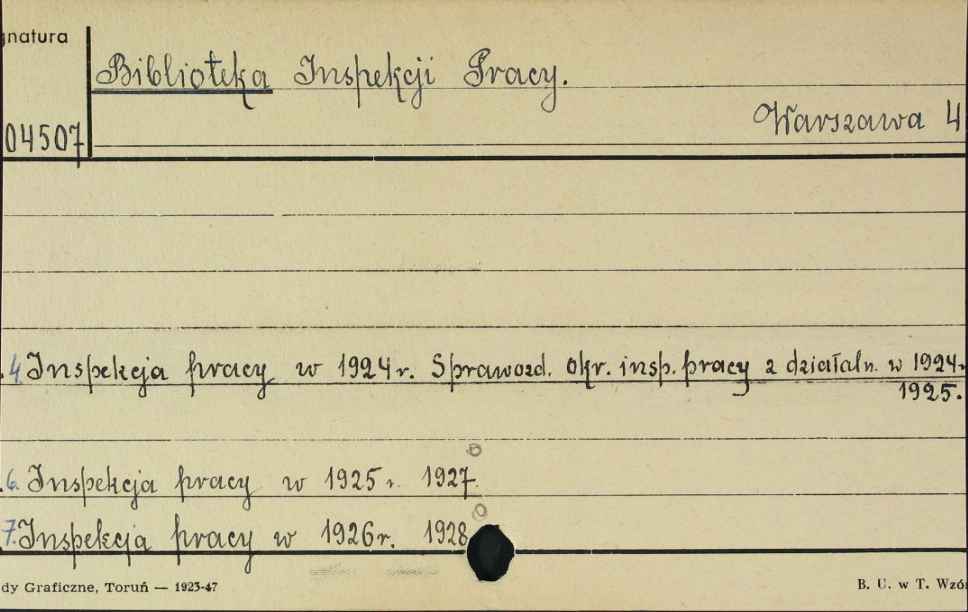 gnatura
Biblioteka Inspekcji Pracy.
Warszawa 4
04507
.4. Inspekcja pracy w 1924 r. Sprawozd. okr. insp. pracy z działaln. w 1924.
1925.
.6. Inspekcja pracy w 1925 r. 1927.
7. Inspekcja pracy w 1926 r. 1928
dy Graficzne, Toruń — 1923-47
B. U. w T. Wzó